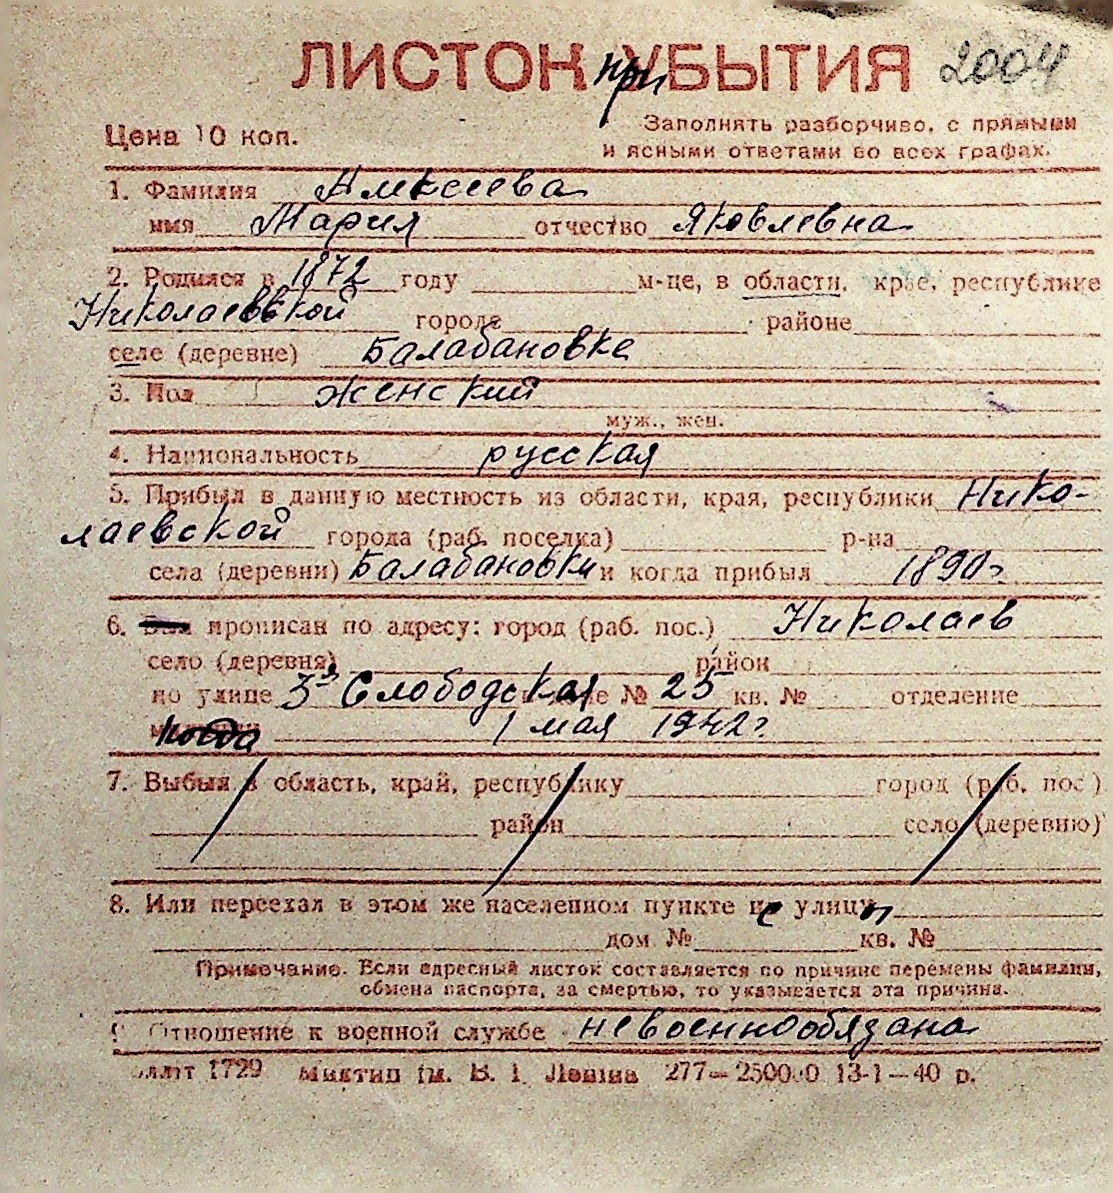 ЛИСТОК при УБЫТИЯ 2004
Цена 10 коп.
Заполнять разборчиво, с прямыми
и ясными ответами во всех графах.
1. Фамилия Алексеева
имя Мария отчество Яковлевна
2. Родился в 1872 году м-це, в области, крае, республике
Николаевской города районе
селе (деревне) Балабановке
3. Пол женский
муж., жен.
4. Национальность русская
5. Прибыл в данную местность из области, края, республики Нико-
лаевской города (раб. поселка) р-на
села (деревни) Балабановки и когда прибыл 1890г
6. прописан по адресу: город (раб. пос.) Николаев
село (деревня) район
по улице 3я Слободская № 25 кв. № отделение
когда 1 мая 1942г.
7. Выбыл в область, край, республику город (раб. пос.)
район село (деревню)
8. Или переехал в этом же населенном пункте улицу
дом № кв. №
Примечание. Если адресный листок составляется по причине перемены фамилии,
обмена паспорта, за смертью, то указывается эта причина.
9. Отношение к военной службе невоеннообязана
1729 Миктип ім. В. І. Леніна 277—25000 13-1—40 р.